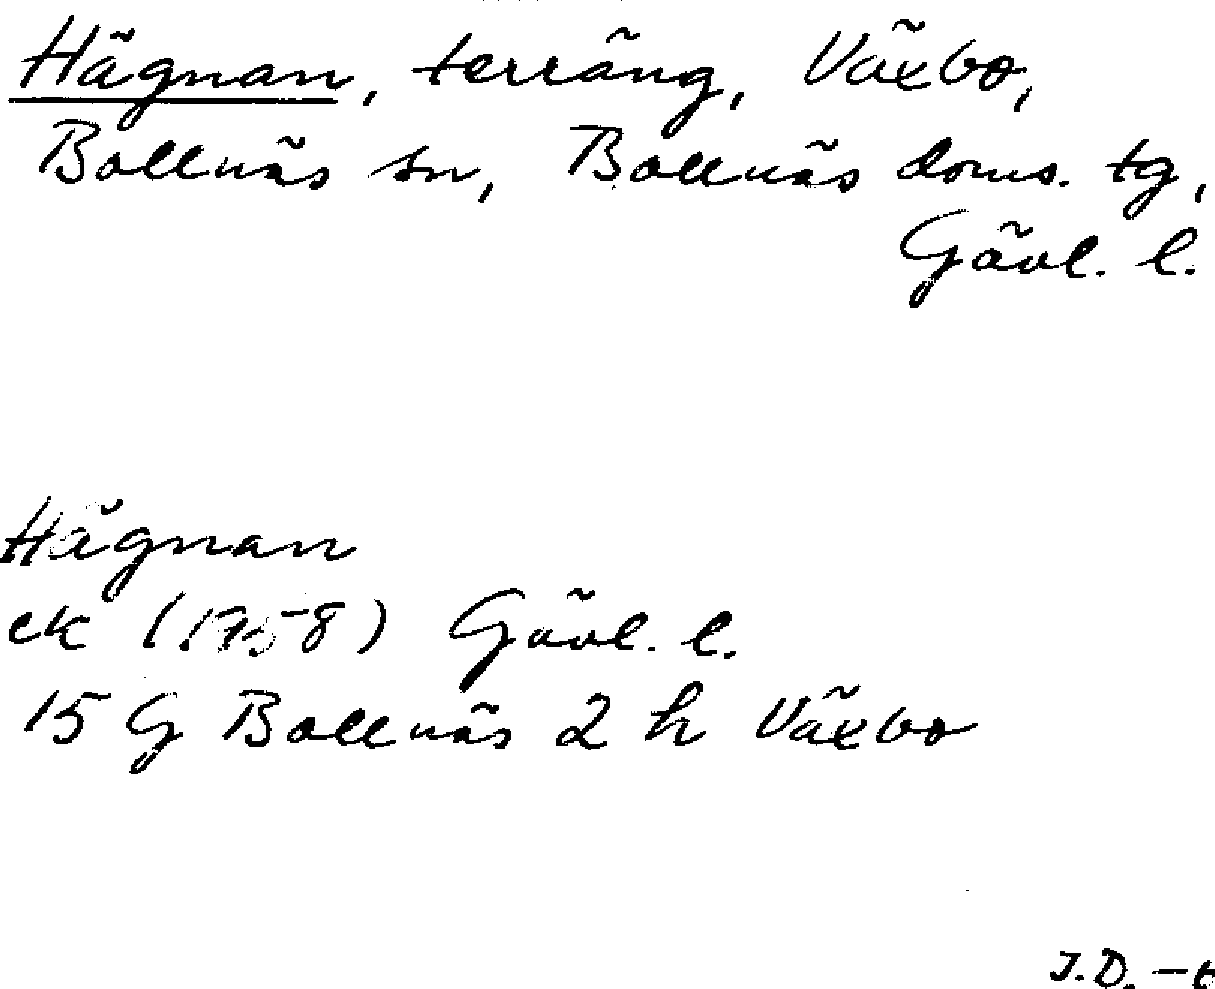 Hägnan, terräng, Växbo,
Bollnäs sn, Bollnäs doms. tg,
Gävl. l.
Hägnan
ek (1958) Gävl. l.
15 G Bollnäs 2 h Växbo
J.D. -6